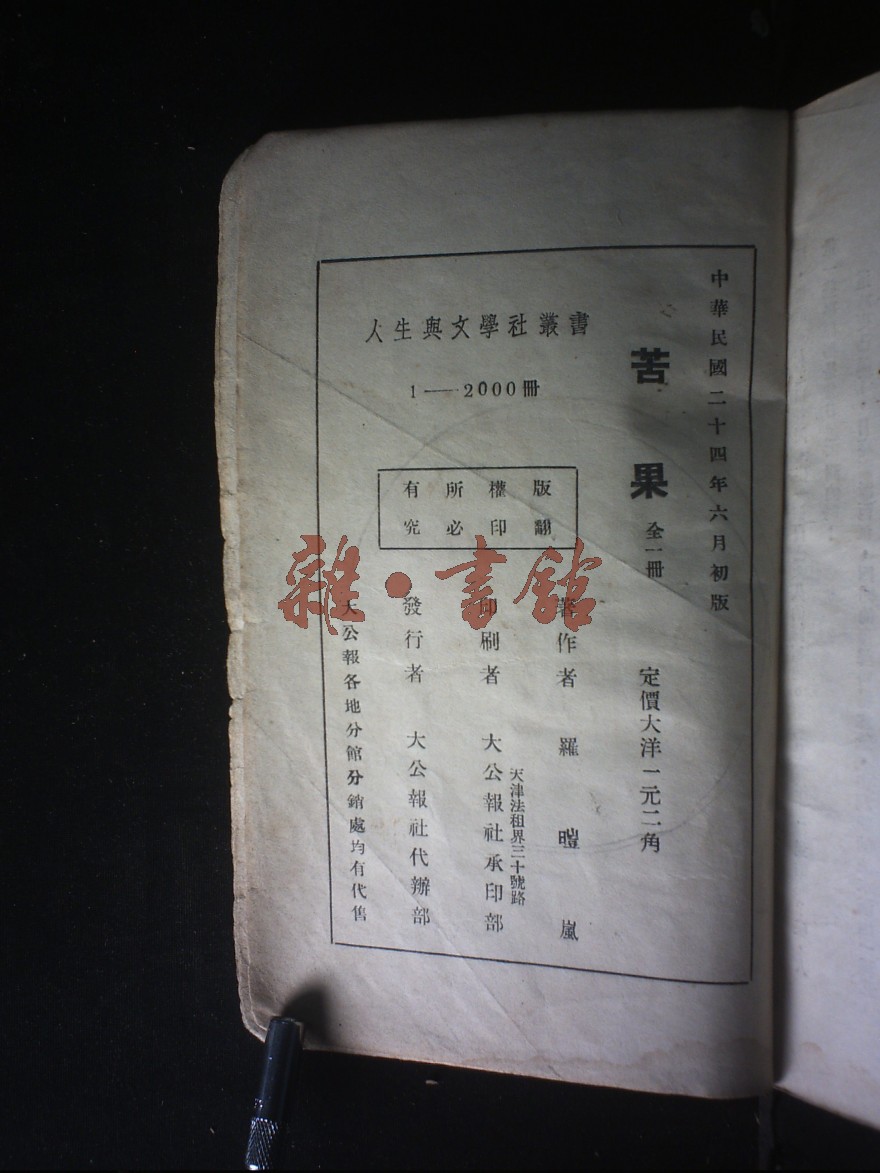 中華民國二十四年六月初版
苦果 全一冊 定價大洋一元二角
人生與文學社叢書
1——2000冊
版權所有
翻印必究
著作者 羅暟嵐
天津法租界三十號路
印刷者 大公報社承印部
發行者 大公報社代辦部
大公報各地分館分銷處均有代售
雜·書館